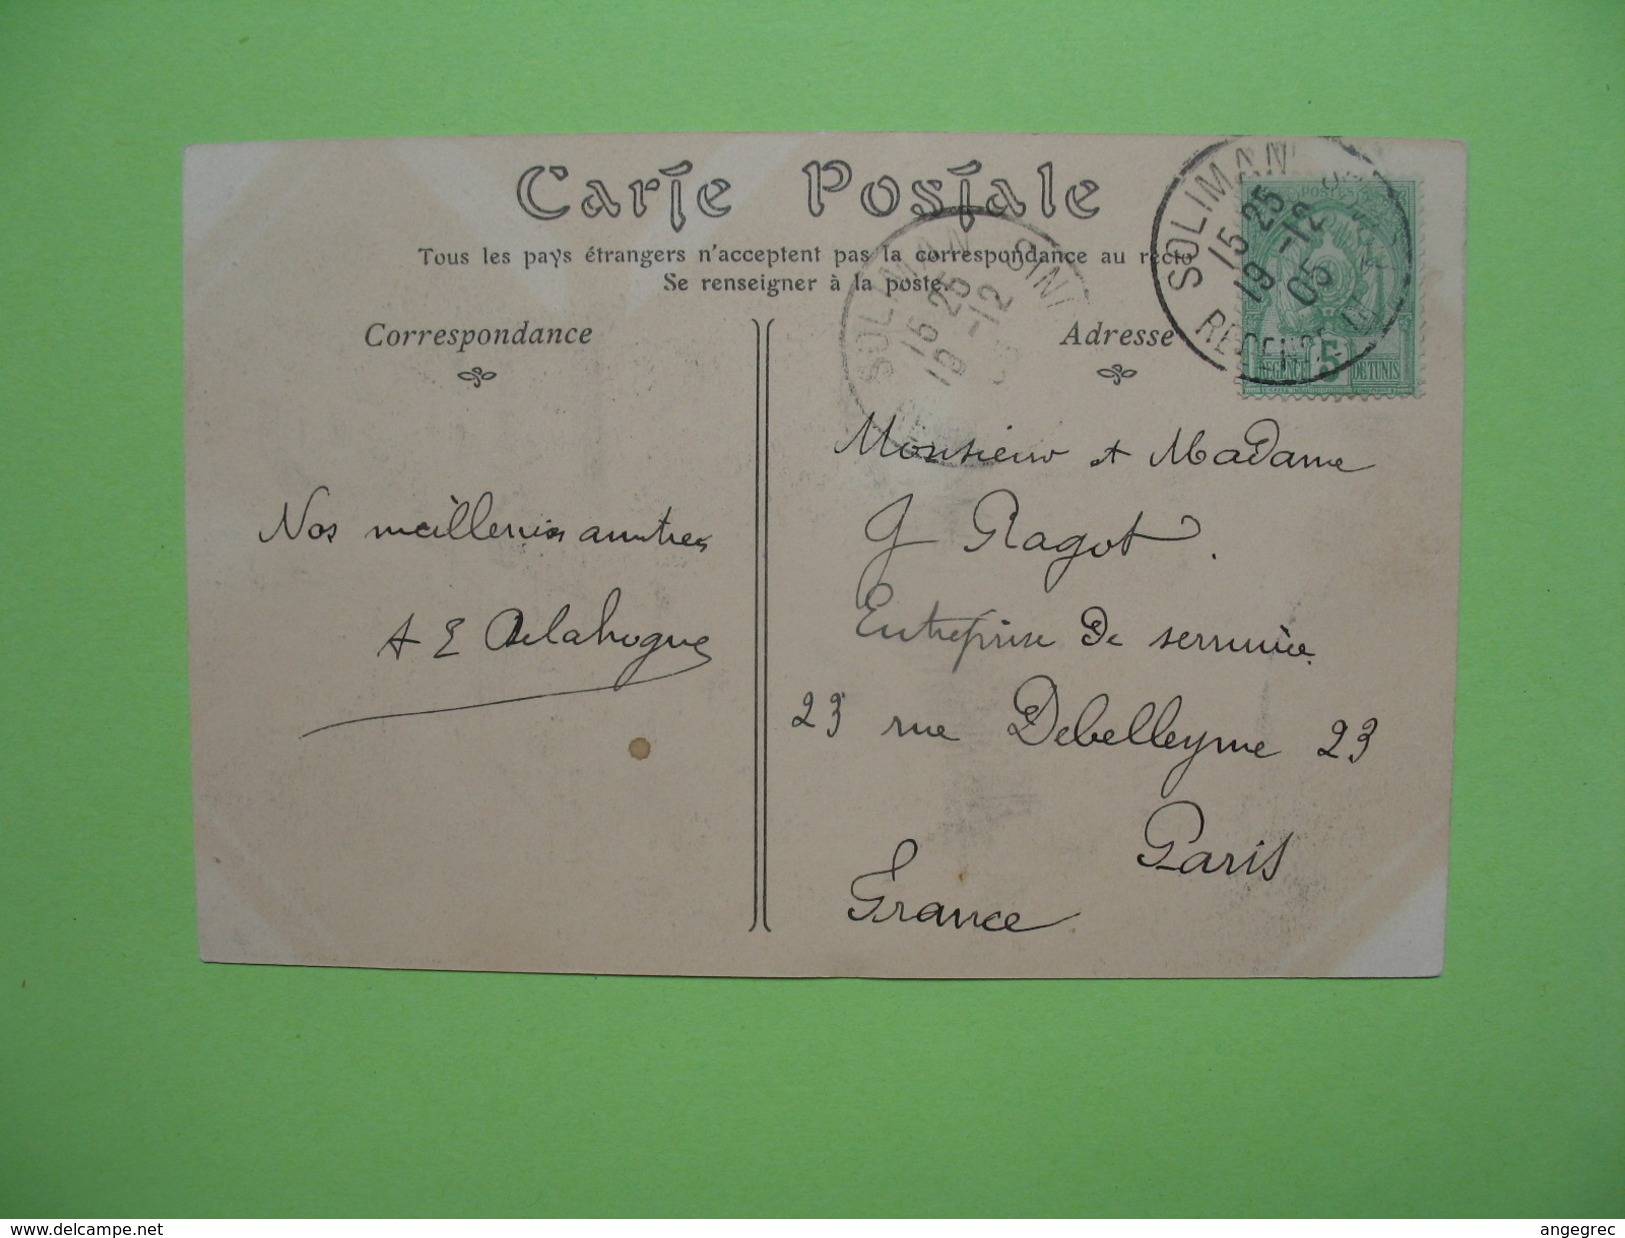 Carte Postale
Tous les pays étrangers n'acceptent pas la correspondance au recto
Se renseigner à la poste.
Correspondance
Adresse
SOLIMAN
15 25
19 -12
05
POSTES
5
REGENCE DE TUNIS
SOLIMAN
15 25
19 -12
Nos meilleures amitiés
A E Delahogue
Monsieur et Madame
G Ragot.
Entreprise de serrurerie
23 rue Debelleyme 23
Paris
France
www.delcampe.net
angegrec